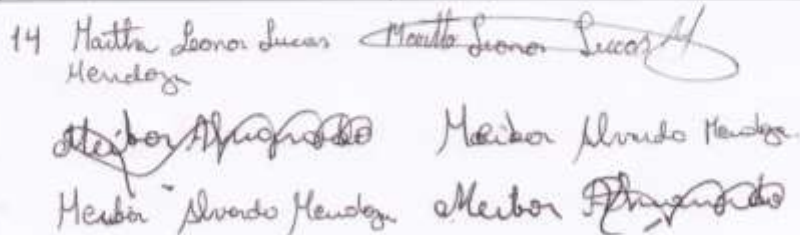 14 Martha Leonor Lucas Martha Leonor Lucas M
Mendoza
Meibor Alvarado Meibor Alvarado Mendoza
Meibor Alvarado Mendoza Meibor Alvarado